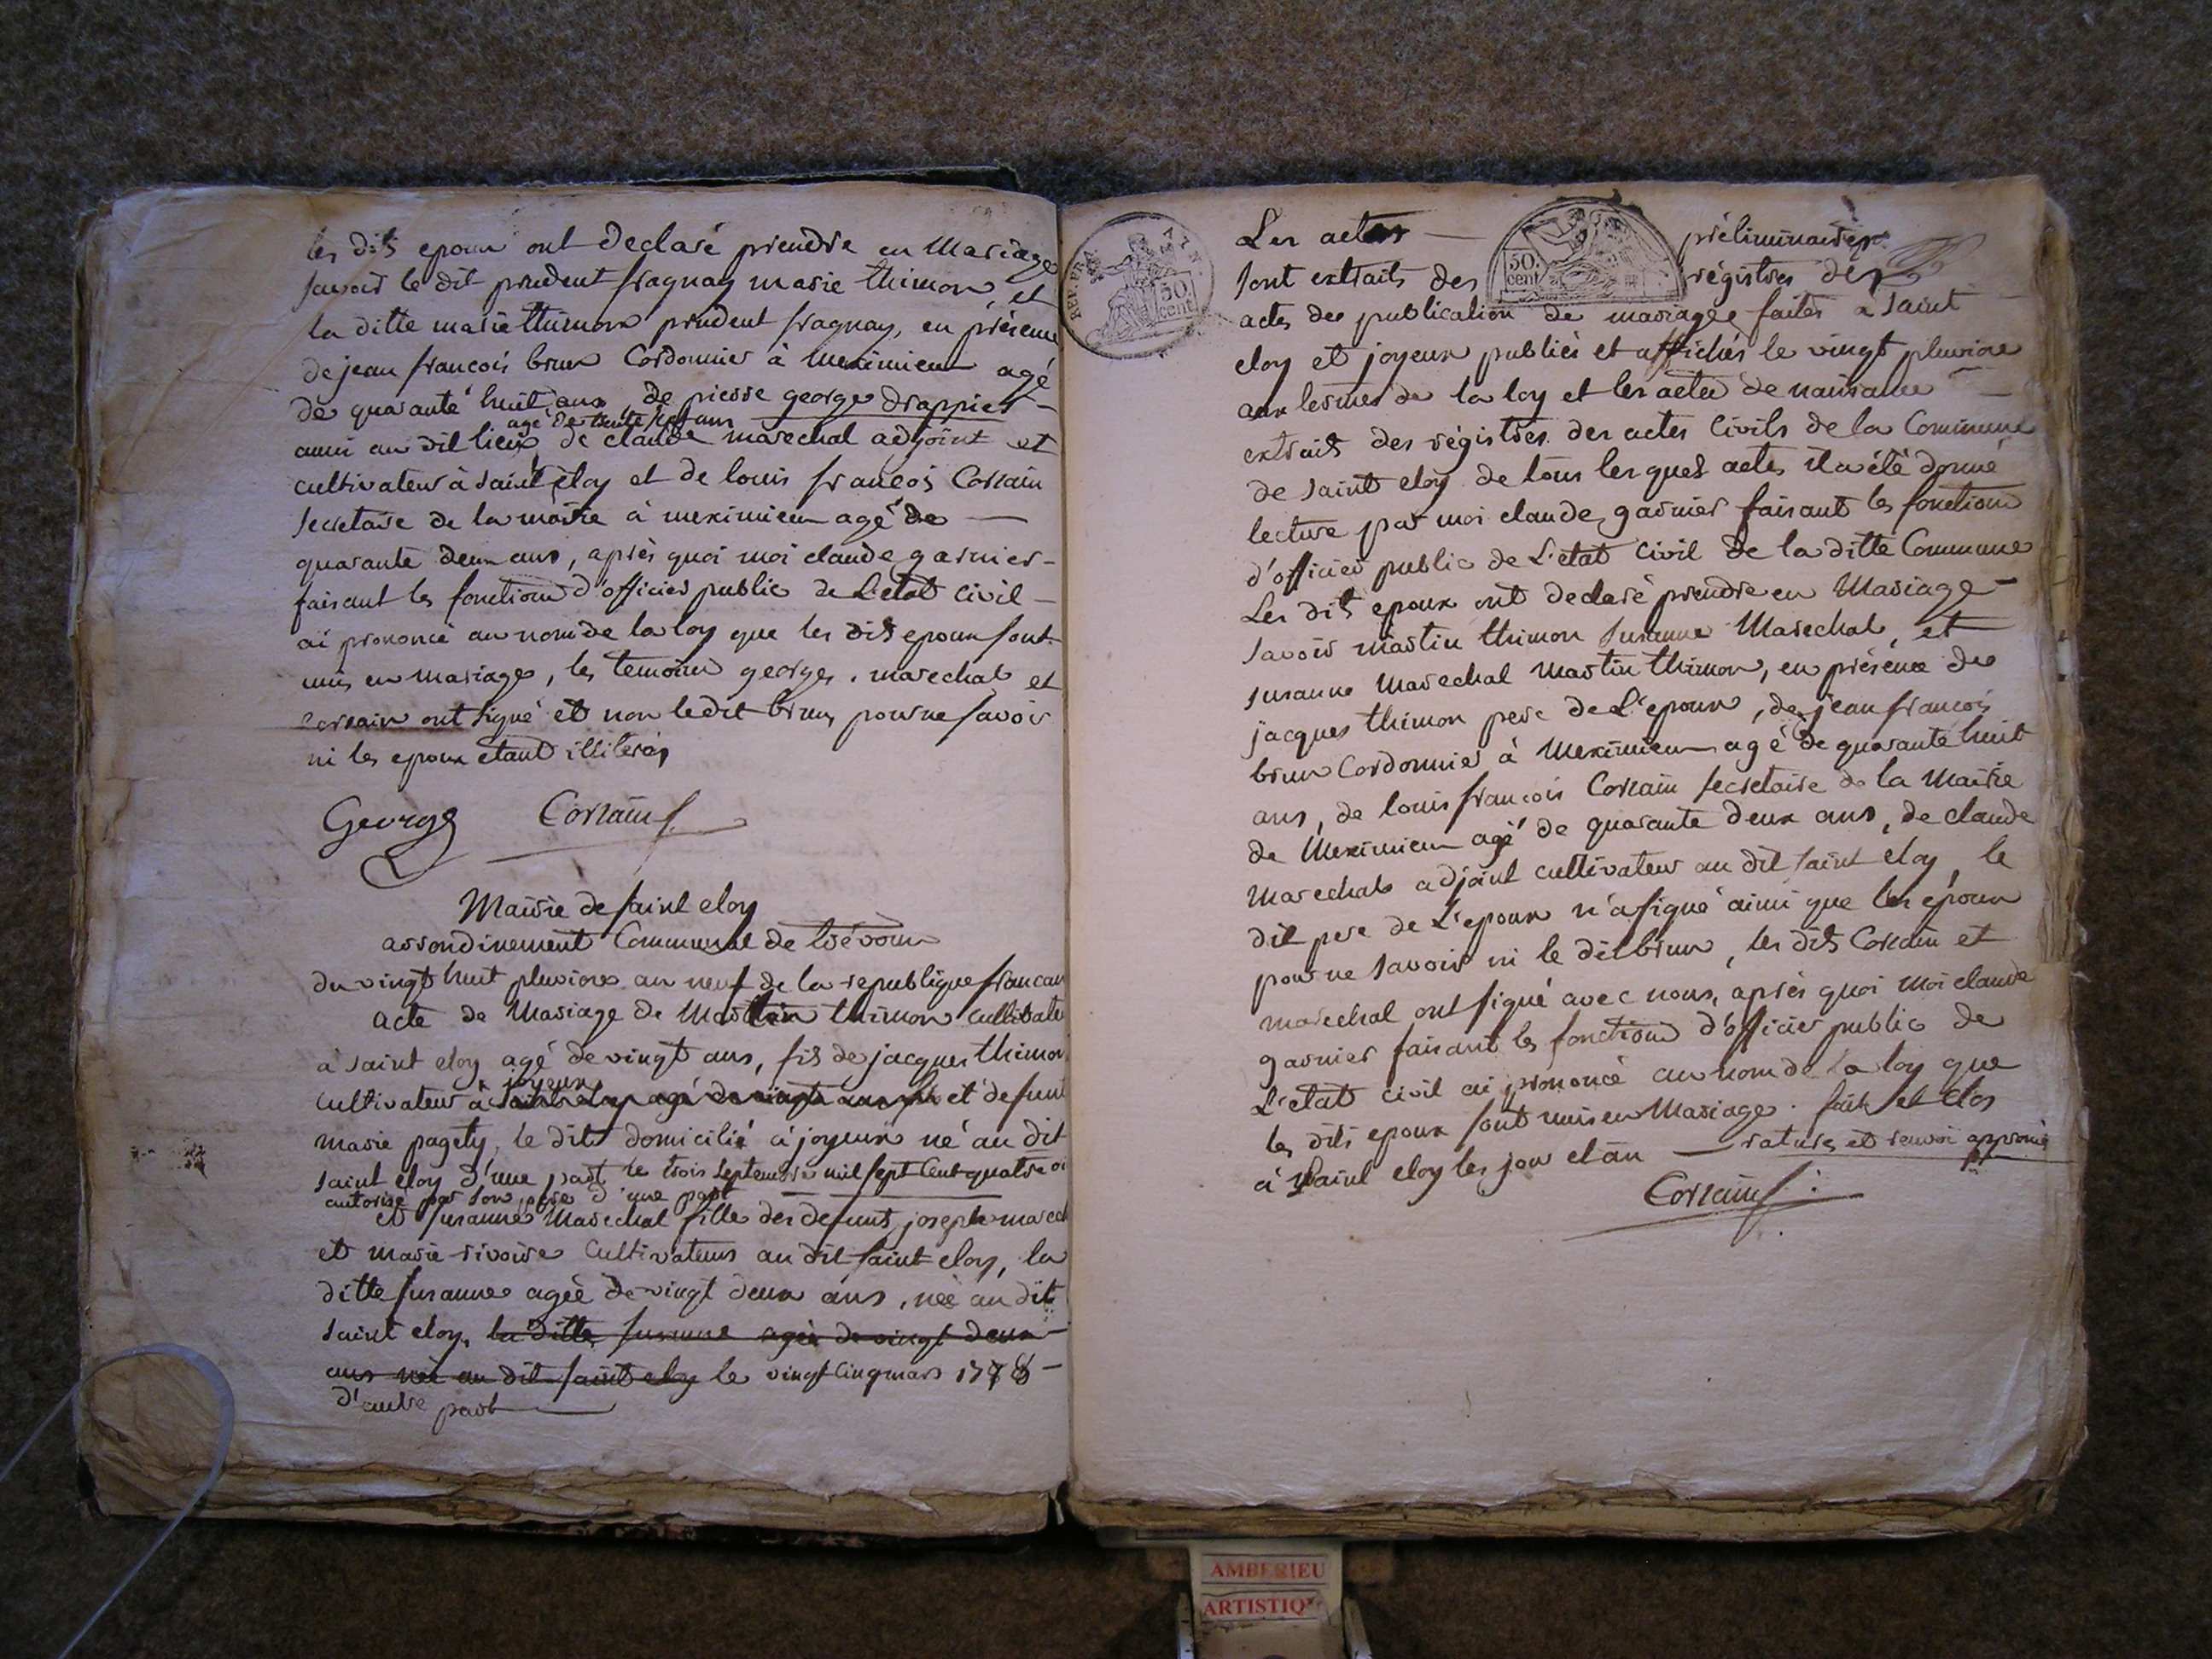 les dits epoux ont declaré prendre en Mariage
savoir le dit prudent fragnay marie thimon, et
la ditte marie thimon prudent fragnay, en présence
de jean francois brun Cordonnier à meximieux agé
de quarante huit ans, de pierre george drappier
agé de trente sept ans
aussi au dit lieu de claude marechal adjoint et
cultivateur à saint eloy et de louis francois Corzain
secretaire de la mairie à meximieux agé de
quarante deux ans, après quoi moi claude garnier
faisant les fonctions d'officier public de L'etat civil
ai prononcé au nom de la loy que les dits epoux sont
unis en mariage, les temoins george, marechal et
corzain ont signé et non le dit brun pour ne savoir
ni les epoux etant illiterés
George Corzain
Mairie de saint eloy
arrondinement Communal de trévoux
du vingt huit pluviose an neuf de la republique francai
acte de Mariage de Martin thimon cultivate
à saint eloy agé de vingt ans, fils de jacques thimon
joyeux
cultivateur à saint eloy agé de vingt ans et defunt
marie pagety, le dit domicilié à joyeux né au dit
saint eloy d'une part le trois septembre mil sept cent quatre
autorisé par son pere d'une part
et susanne Marechal fille des defunts joseph marech
et marie rivoire cultivateurs au dit saint eloy, la
ditte susanne ageé de vingt deux ans, neé au dit
saint eloy, la ditte susanne ageé de vingt deux
ans neé au dit saint eloy le vingt cinq mars 1778
d'autre part
Les actes préliminaires
sont extraits des régistres des
actes de publication de mariage faites à saint
eloy et joyeux publiés et affichés le vingt pluviose
aux termes de la loy et les actes de naissance
extraits des régistres des actes civils de la Commune
de saint eloy de tous lesquels actes il a été donné
lecture par moi claude garnier faisant les fonctions
d'officier public de L'etat civil de la ditte Commune
Les dits epoux ont declaré prendre en Mariage
savoir martin thimon susanne Marechal, et
susanne Marechal Martin thimon, en présence de
jacques thimon pere de L'epoux, de jean francois
brun Cordonnier à Meximieux agé de quarante huit
ans, de louis francois Corzain secretaire de la Mairie
de Meximieux agé de quarante deux ans, de claude
Marechal adjoint cultivateur au dit saint eloy, le
dit pere de L'epoux n'a signé ainsi que les epoux
pour ne savoir ni le dit brun, les dits Corzain et
marechal ont signé avec nous, après quoi moi claude
garnier faisant les fonctions d'officier public de
L'etat civil ai prononcé au nom de la loy que
les dits epoux sont unis en Mariage. fait et clos
à saint eloy les jour et an rature et renvoi approuvé
Corzain
REP. FRA.
50 cent
50. cent
AMBERIEU
ARTISTIQ